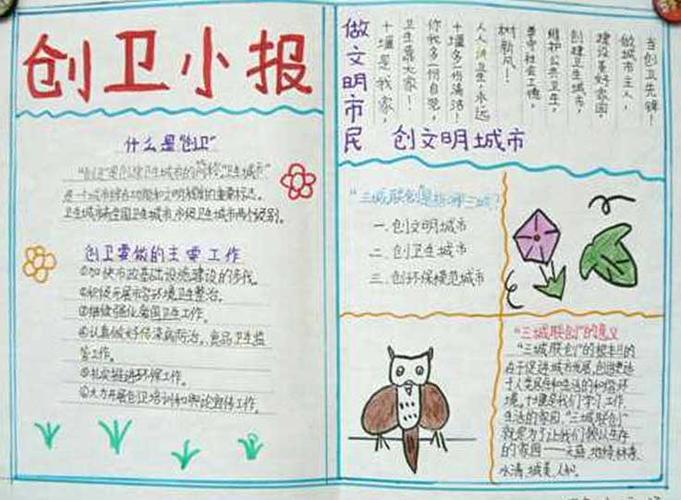 创卫小报
什么是"创卫"
"创卫"是创建卫生城市的简称,"卫生城市"
是一个城市综合功能和文明程度的重要标志。
卫生城市有全国卫生城市、省级卫生城市两个级别。
创卫要做的主要工作
①加快市政基础设施建设的步伐。
②积极开展市容环境卫生整治。
③继续强化爱国卫生工作。
④认真做好传染病防治、食品卫生监
管工作。
⑤扎实推进环保工作。
⑥大力开展创卫培训和舆论宣传工作。
当创卫先锋!
做城市主人,
建设美好家园,
创建卫生城市,
维护公共卫生,
尊守社会公德,
树新风!
人人讲卫生,永远
十堰多一份清洁!
你我多一份自觉,
卫生靠大家!
十堰是我家,
做文明市民
创文明城市
"三城联创是指哪三城?
一.创文明城市
二.创卫生城市
三.创环保模范城市
"三城联创"的意义
"三城联创"的根本目的
在于促进城市发展,创造更适
于人类居住和生活的和谐环
境,十堰是我们学习、工作、
生活的家园,"三城联创"
就是为了让我们赖以生存
的家园——天蓝、地绿、林茂、
水清、城美、人和。